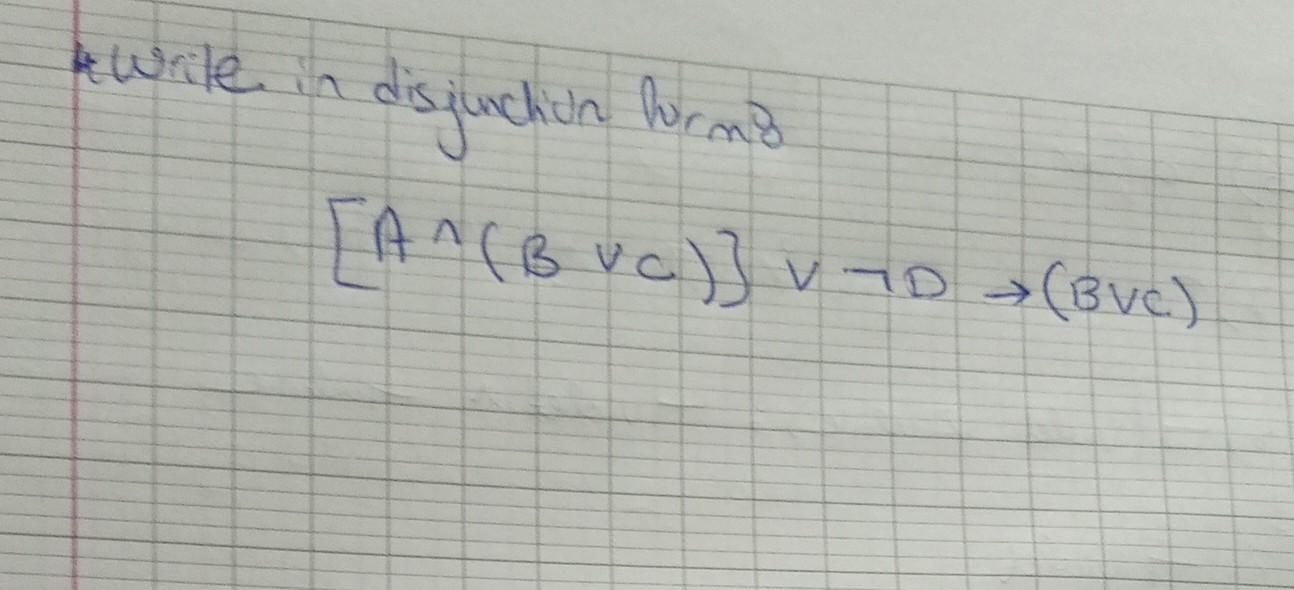 Write in disjunction form:
[A ∧ (B ∨ C)] ∨ ¬D → (B∨C)